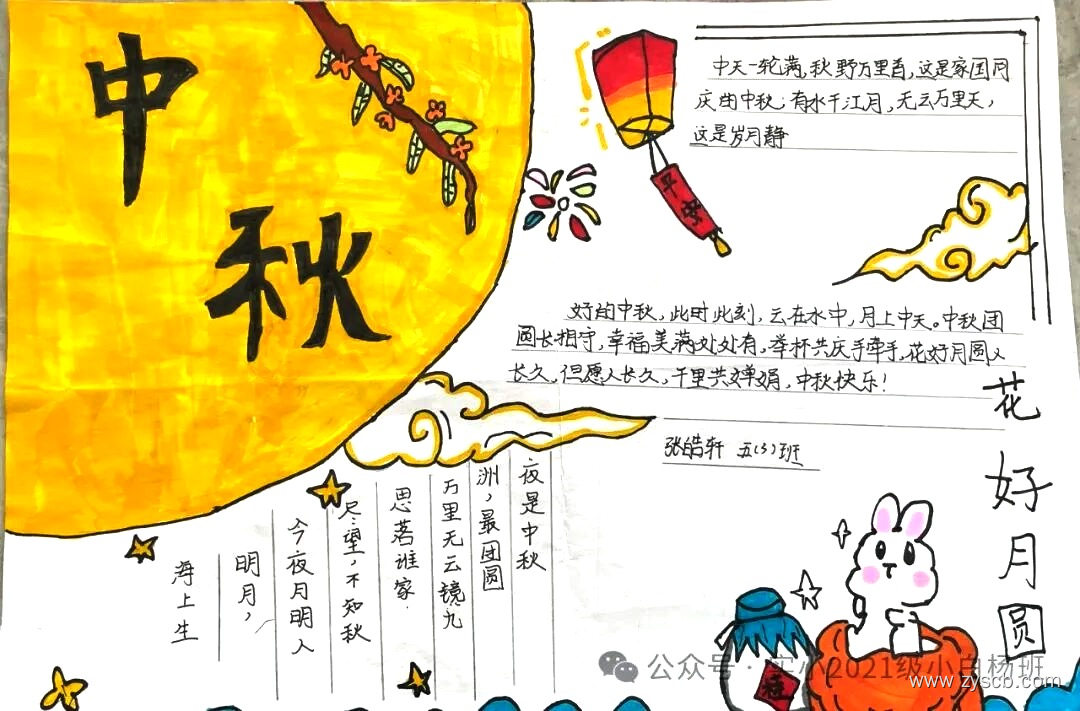 中
秋
平安
中天一轮满,秋野万里香,这是家国同
庆的中秋;有水千江月,无云万里天,
这是岁月静
好的中秋,此时此刻,云在水中,月上中天。中秋团
圆长相守,幸福美满处处有,举杯共庆手牵手,花好月圆人
长久,但愿人长久,千里共婵娟,中秋快乐!
张皓轩 五(3)班
花好月圆
夜是中秋
洲,最团圆
万里无云镜九
思落谁家.
尽望,不知秋
今夜月明人
明月,
海上生
桂
公众号·实小2021级小白杨班
www.zyscb.com